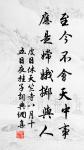 至今不會天中事
應是嫦娥擲與人
皮日休天竺寺八月十
五日夜桂子詩典酒庄